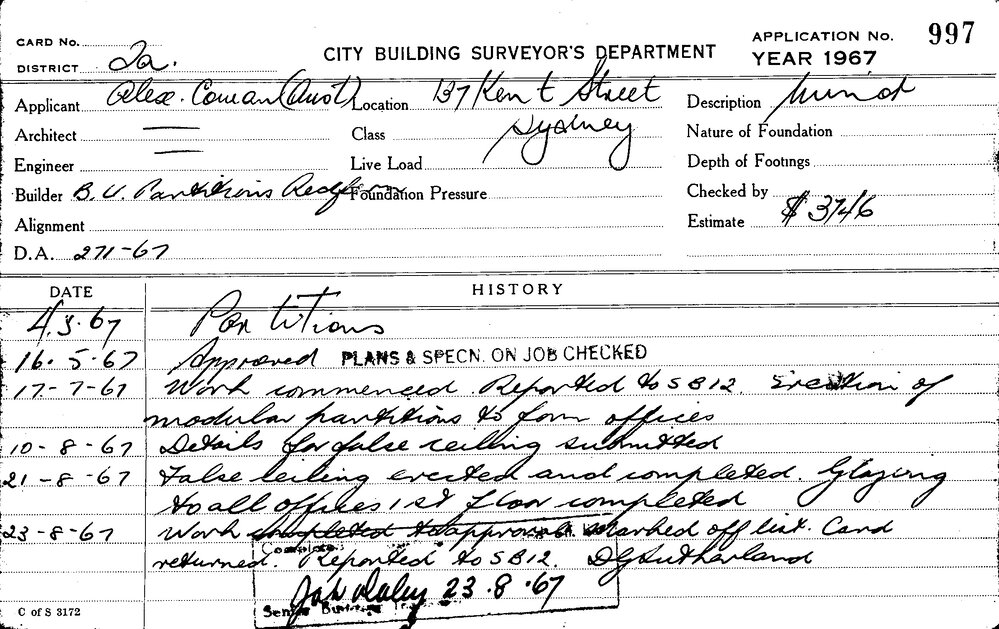 CARD No.
CITY BUILDING SURVEYOR'S DEPARTMENT
APPLICATION No. 997
DISTRICT 2a.
YEAR 1967
Applicant Alex. Cowan (Aust) Location 137 Kent Street Description Minor
Architect — Class Sydney Nature of Foundation
Engineer — Live Load Depth of Footings
Builder B.V. Partitions Foundation Pressure Checked by
Alignment Estimate $3746
D.A. 271-67
DATE HISTORY
4.3.67 Partitions
16.5.67 Approved PLANS & SPECN. ON JOB CHECKED
17-7-67 Work commenced. Reported to SB12. Erection of
modular partitions to form offices
10-8-67 Details for false ceiling submitted
21-8-67 False ceiling erected and completed. Glazing
to all offices 1st floor completed
23-8-67 Work completed to approval. Marked off list. Card
returned. Reported to SB12. DGSutherland
23.8.67
C of S 3172